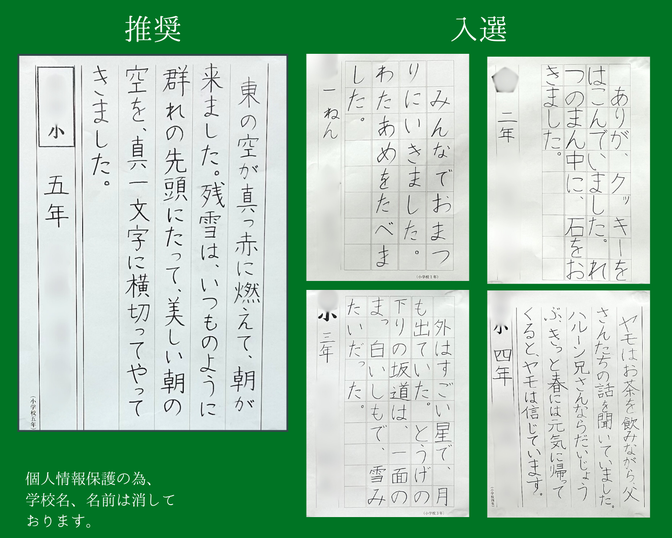 推奨
入選
東の空が真っ赤に燃えて、朝が
来ました。残雪は、いつものように
群れの先頭にたって、美しい朝の
空を、真一文字に横切ってやって
きました。
小 五年
(小学校五年)
みんなでおまつ
りにいきました。
わたあめをたべま
した。
一ねん
(小学校1年)
ありが、クッキーを
はこんでいました。れ
つのまん中に、石をお
きました。
二年
外はすごい星で、月
も出ていた。とうげの
下りの坂道は、一面の
まっ白いしもで、雪み
たいだった。
小 三年
(小学校3年)
ヤモはお茶を飲みながら父
さんたちの話を聞いていました。
ハルーン兄さんならだいじょう
ぶ、きっと春には元気に帰って
くると、ヤモは信じています。
小 四年
個人情報保護の為、
学校名、名前は消して
おります。